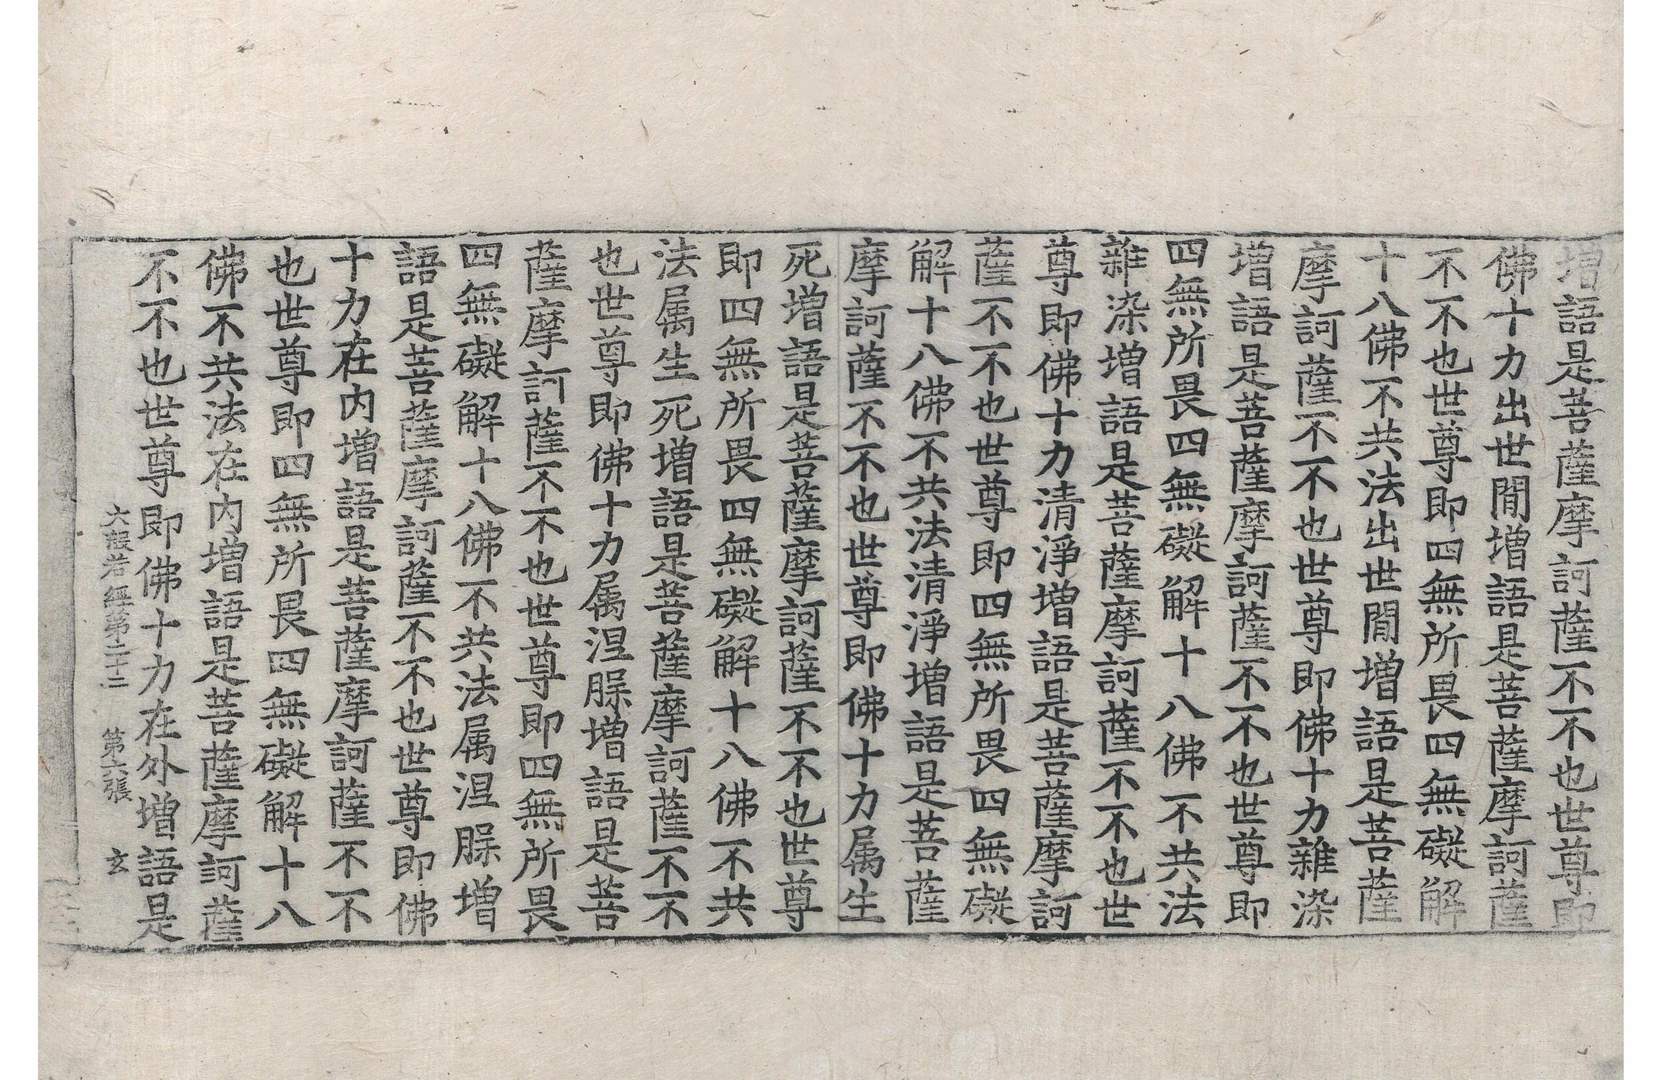 增語是菩薩摩訶薩不不也世尊即
佛十力出世間增語是菩薩摩訶薩
不不也世尊即四無所畏四無礙解
十八佛不共法出世間增語是菩薩
摩訶薩不不也世尊即佛十力雜染
增語是菩薩摩訶薩不不也世尊即
四無所畏四無礙解十八佛不共法
雜染增語是菩薩摩訶薩不不也世
尊即佛十力清淨增語是菩薩摩訶
薩不不也世尊即四無所畏四無礙
解十八佛不共法清淨增語是菩薩
摩訶薩不不也世尊即佛十力属生
死增語是菩薩摩訶薩不不也世尊
即四無所畏四無礙解十八佛不共
法属生死增語是菩薩摩訶薩不不
也世尊即佛十力属涅槃增語是菩
薩摩訶薩不不也世尊即四無所畏
四無礙解十八佛不共法属涅槃增
語是菩薩摩訶薩不不也世尊即佛
十力在内增語是菩薩摩訶薩不不
也世尊即四無所畏四無礙解十八
佛不共法在内增語是菩薩摩訶薩
不不也世尊即佛十力在外增語是
大般若經第二十二 第六張 玄